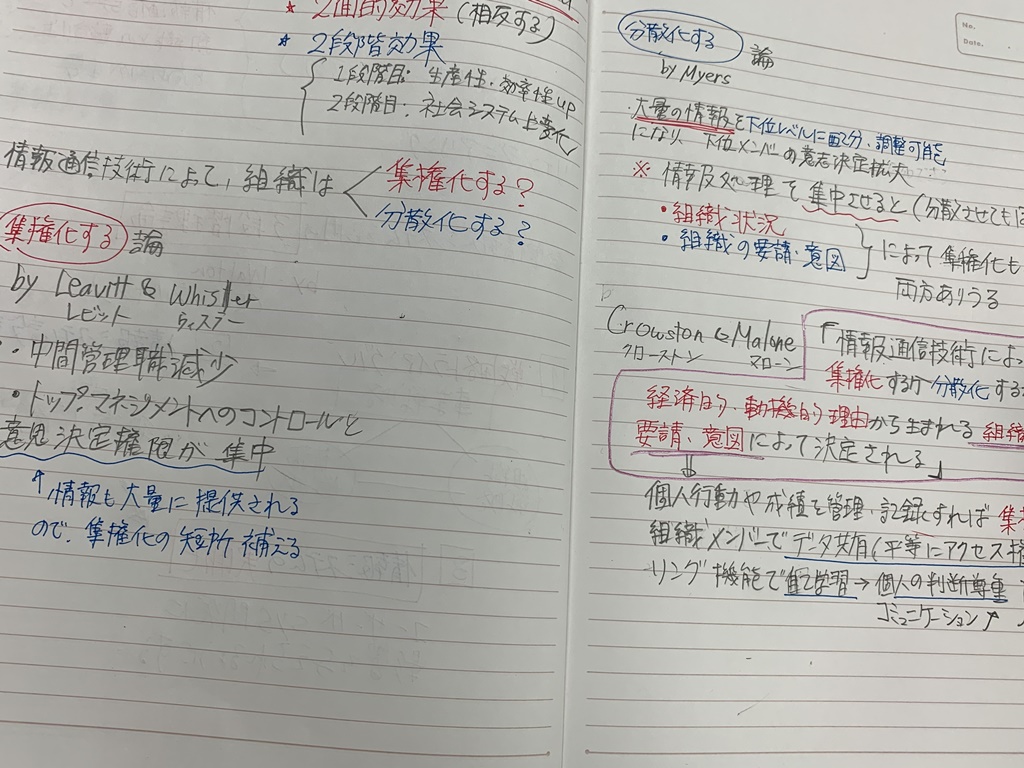 ★ 2面的効果 (相反する)
★ 2段階効果
1段階目: 生産性・効率性up
2段階目: 社会システム上変化
情報通信技術によって、組織は
集権化する?
分散化する?
集権化する 論
by Leavitt & Whisler
レビット ウィスラー
・中間管理職減少
・トップ・マネジメントへのコントロールと
意思決定権限が集中
↑情報も大量に提供される
ので、集権化の短所補える
No.
Date.
分散化する 論
by Myers
・大量の情報を下位レベルに配分・調整可能
になり、下位メンバーの意志決定拡大
※ 情報処理を集中させると(分散させても
・組織状況
・組織の要請・意図
によって集権化も
両方ありうる
Crowston & Malone
クローストン マローン
「情報通信技術によっ
集権化するか分散化する
経済的、動機的理由から生まれる組織
要請・意図によって決定される」
個人行動や成績を管理・記録すれば集
組織メンバーでデータ共有(平等にアクセス
リング機能で 学習→個人の判断尊重
コミュニケーション↑